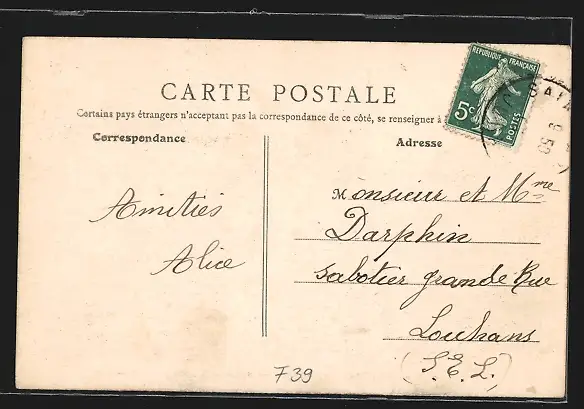 CARTE POSTALE
Certains pays étrangers n'acceptant pas la correspondance de ce côté, se renseigner à
Correspondance
Adresse
RÉPUBLIQUE FRANÇAISE
5c
POSTES
Amitiés
Alice
Monsieur et Mme
Darphin
Sabotier grande Rue
Louhans
(S. & L.)
739